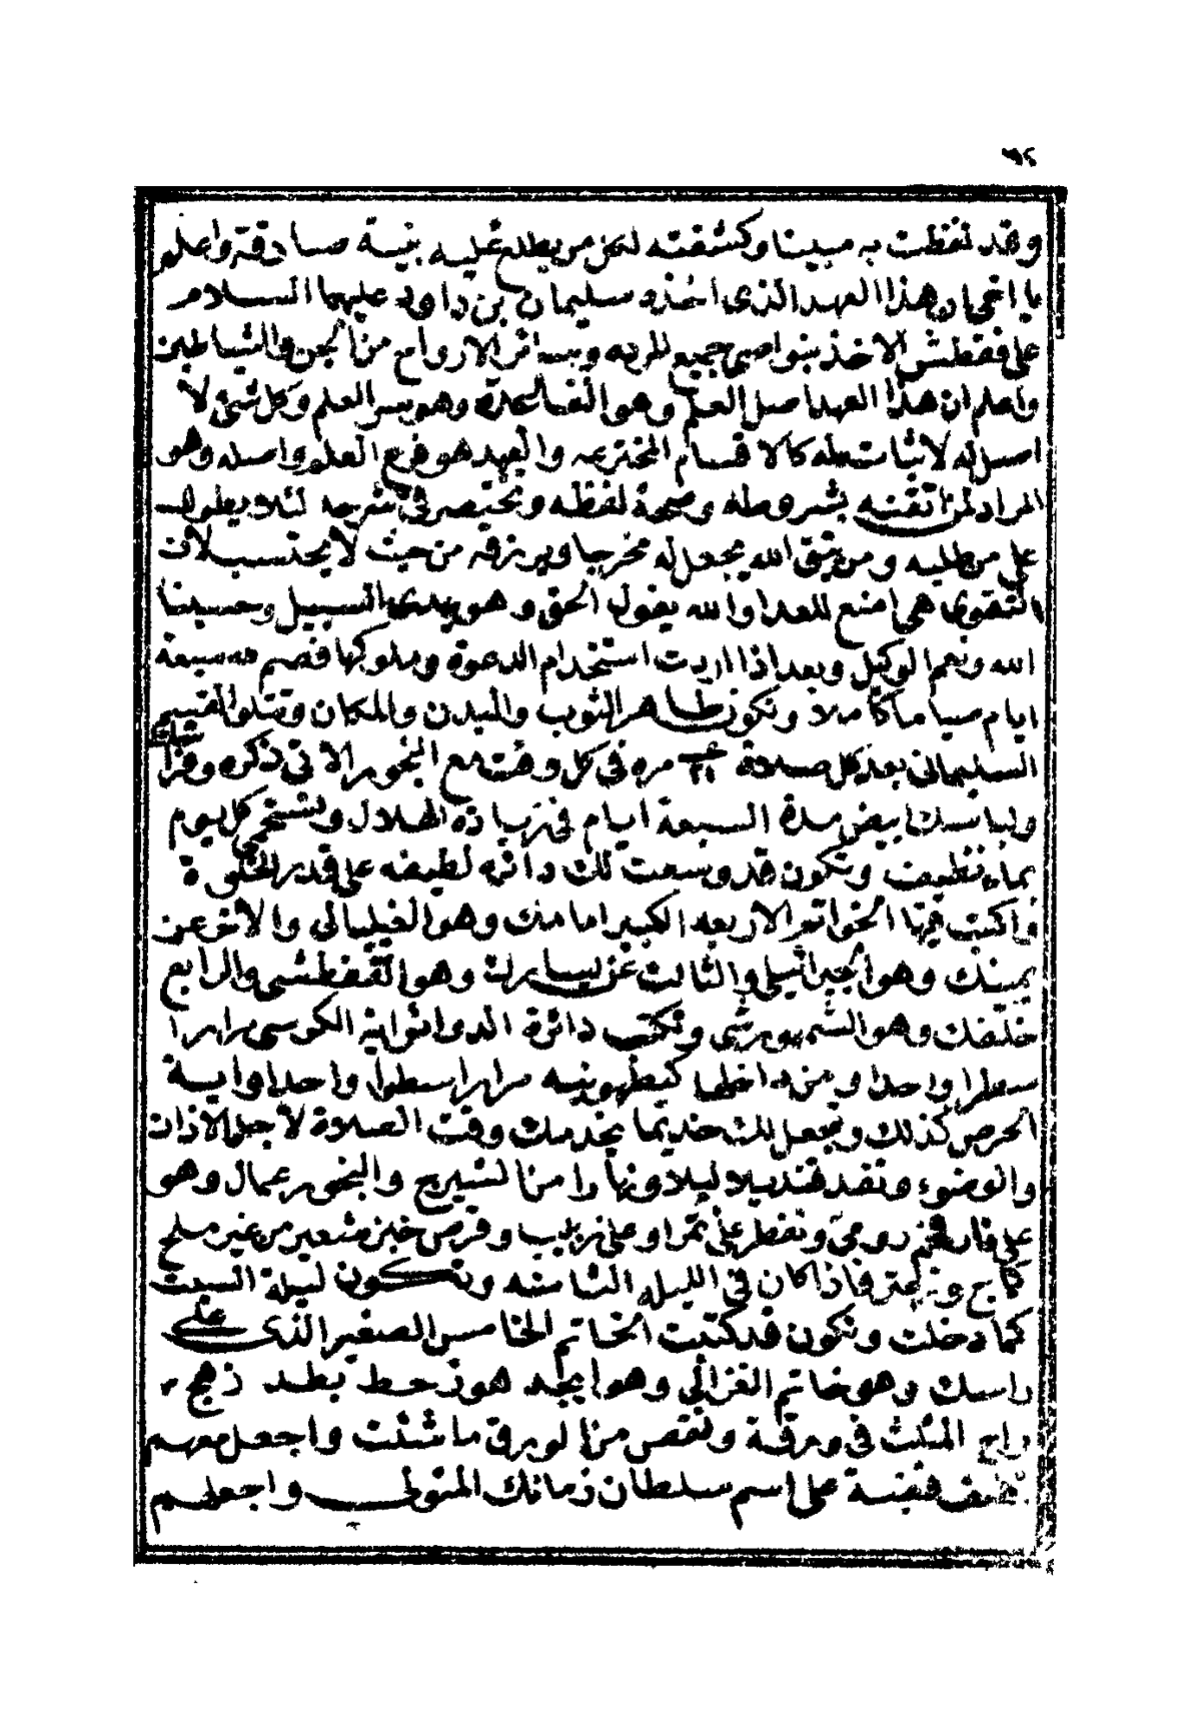 ٦٢
وقد لفظت به مبينا وكشفته لكل من يطلع عليه بنية صادقة واعلم
يا اخي ان هذا العهد الذى اخذه سليمان بن داود عليهما السلام
على فقطش الاخذ بنواصي جميع وسائر الارواح من الجن والشياطين
واعلم ان هذا العهد اصل العلم وهو العمدة وهو سر العلم وكل شئ لا
اصل له لا ثبات له كالاقسام المخترعه والعهد هو فرع العلم واصله وهو
المراد لمن اتقنه بشروطه وصحة لفظه ونختصر في شرحه لئلا يطول
على من طلبه ومن يتق الله يجعل له مخرجا ويرزقه من حيث لا يحتسب لان
التقوى هى امنع للعدا والله يقول الحق وهو يهدى السبيل وحسبنا
الله ونعم الوكيل وبعد اذا اردت استخدام الدعوة وملوكها فصم لله سبعة
ايام صياما كاملا وتكون طاهر الثوب والبدن والمكان وتتلو القسم
السليمانى بعد كل صلاة ٢١ مره في كل وقت مع البخور الاتى ذكره وقرأ
ولباسك ابيض مدة السبعة ايام في زيادة الهلال وتستحم كل يوم
بماء نظيف وتكون قد وسعت لك دائره لطيفه على قدر الخلوة
واكتب فيها الخواتم الاربعه الكبير امامك وهو الغيليالى والاخر عن
يمينك وهو الجبرائيلى والثالث عن يسارك وهو القفطشى والرابع
خلفك وهو وتكتب دائرة الدوائر اية الكرسى مرارا
سطرا واحدا ومن داخلها مرارا سطرا واحدا واية
الحرص كذلك وتجعل لك خديما يخدمك وقت الصلاة لاجل الاذان
والوضوء وتقد قنديلا ليلا ونهارا من الشيرج والبخور عمال وهو
على فار فحم رومى وتفطر على تمر او على زبيب وقرص خبز شعير من غير ملح
فاذا كان في الليله الثامنه وتكون ليلة السبت
كما دخلت وتكون قد كتبت الخاتم الخامس الصغير الذى على
راسك وهو خاتم الغزالى وهو ابجد هوز حط بطد زهج
واح المثلث في ورقة وتقص من الورق ما شئت واجعل معهم
فضة على اسم سلطان زمانك المتولى واجعلهم